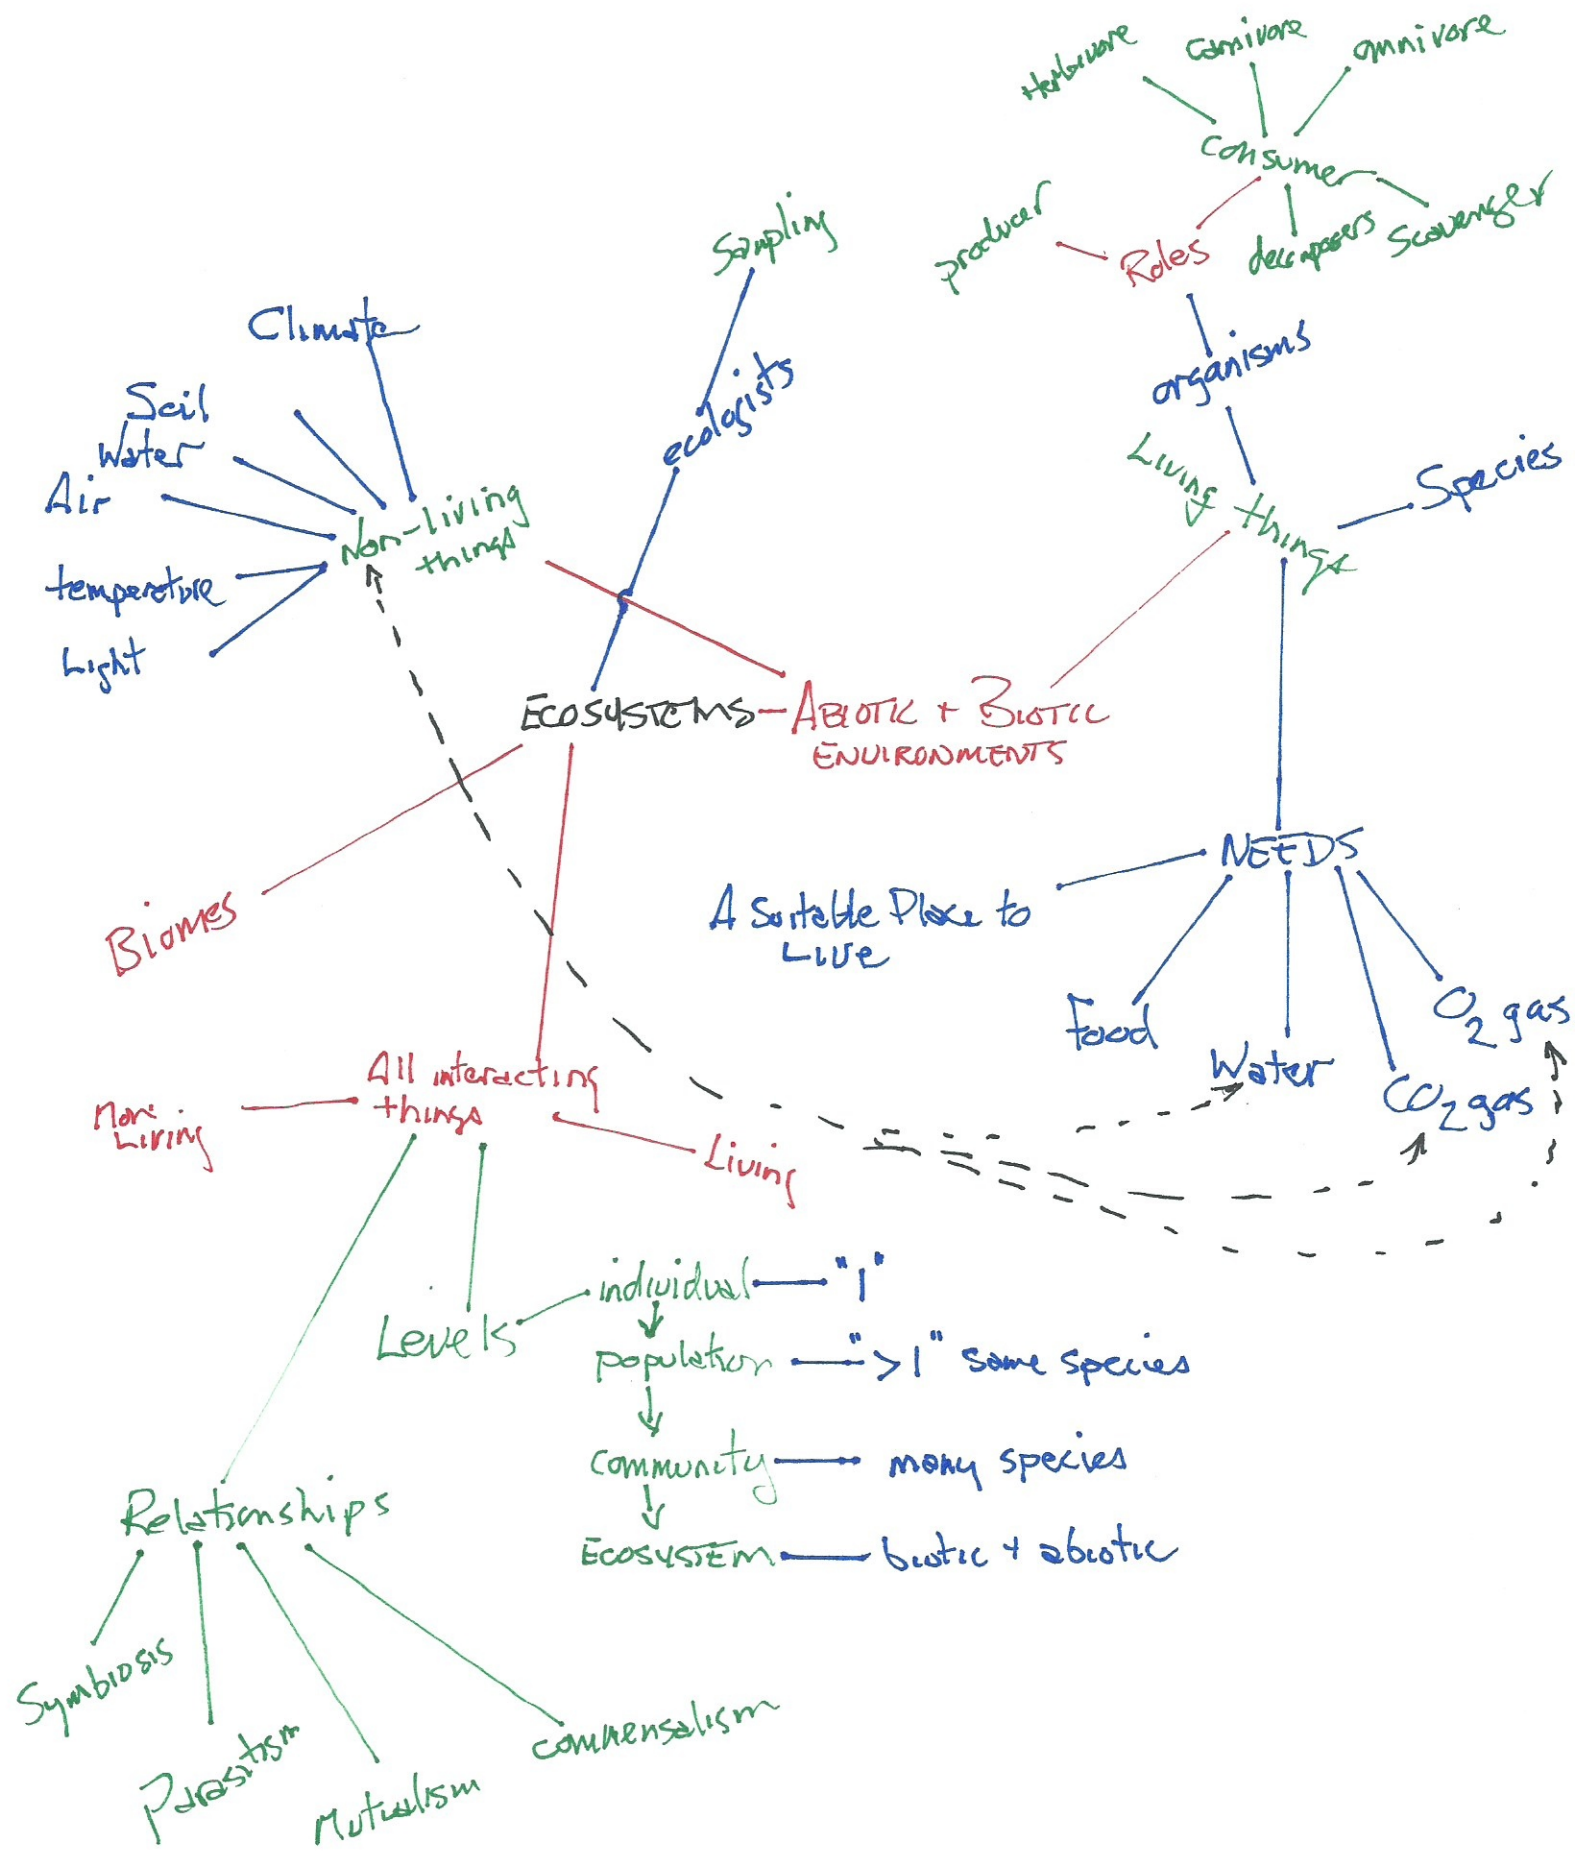 Herbivore
Carnivore
omnivore
Consumer
producer
Roles
decomposers
Scavenger
Sampling
Climate
organisms
ecologists
Soil
Water
Air
Living things
Species
Non-Living
things
temperature
Light
ECOSYSTEMS
ABIOTIC + BIOTIC
ENVIRONMENTS
NEEDS
Biomes
A Suitable Place to
Live
Food
Water
O2 gas
CO2 gas
All interacting
things
Non-
Living
Living
Levels
individual
"1"
population
">1" same species
community
many species
ECOSYSTEM
biotic + abiotic
Relationships
Symbiosis
Parasitism
Mutualism
commensalism